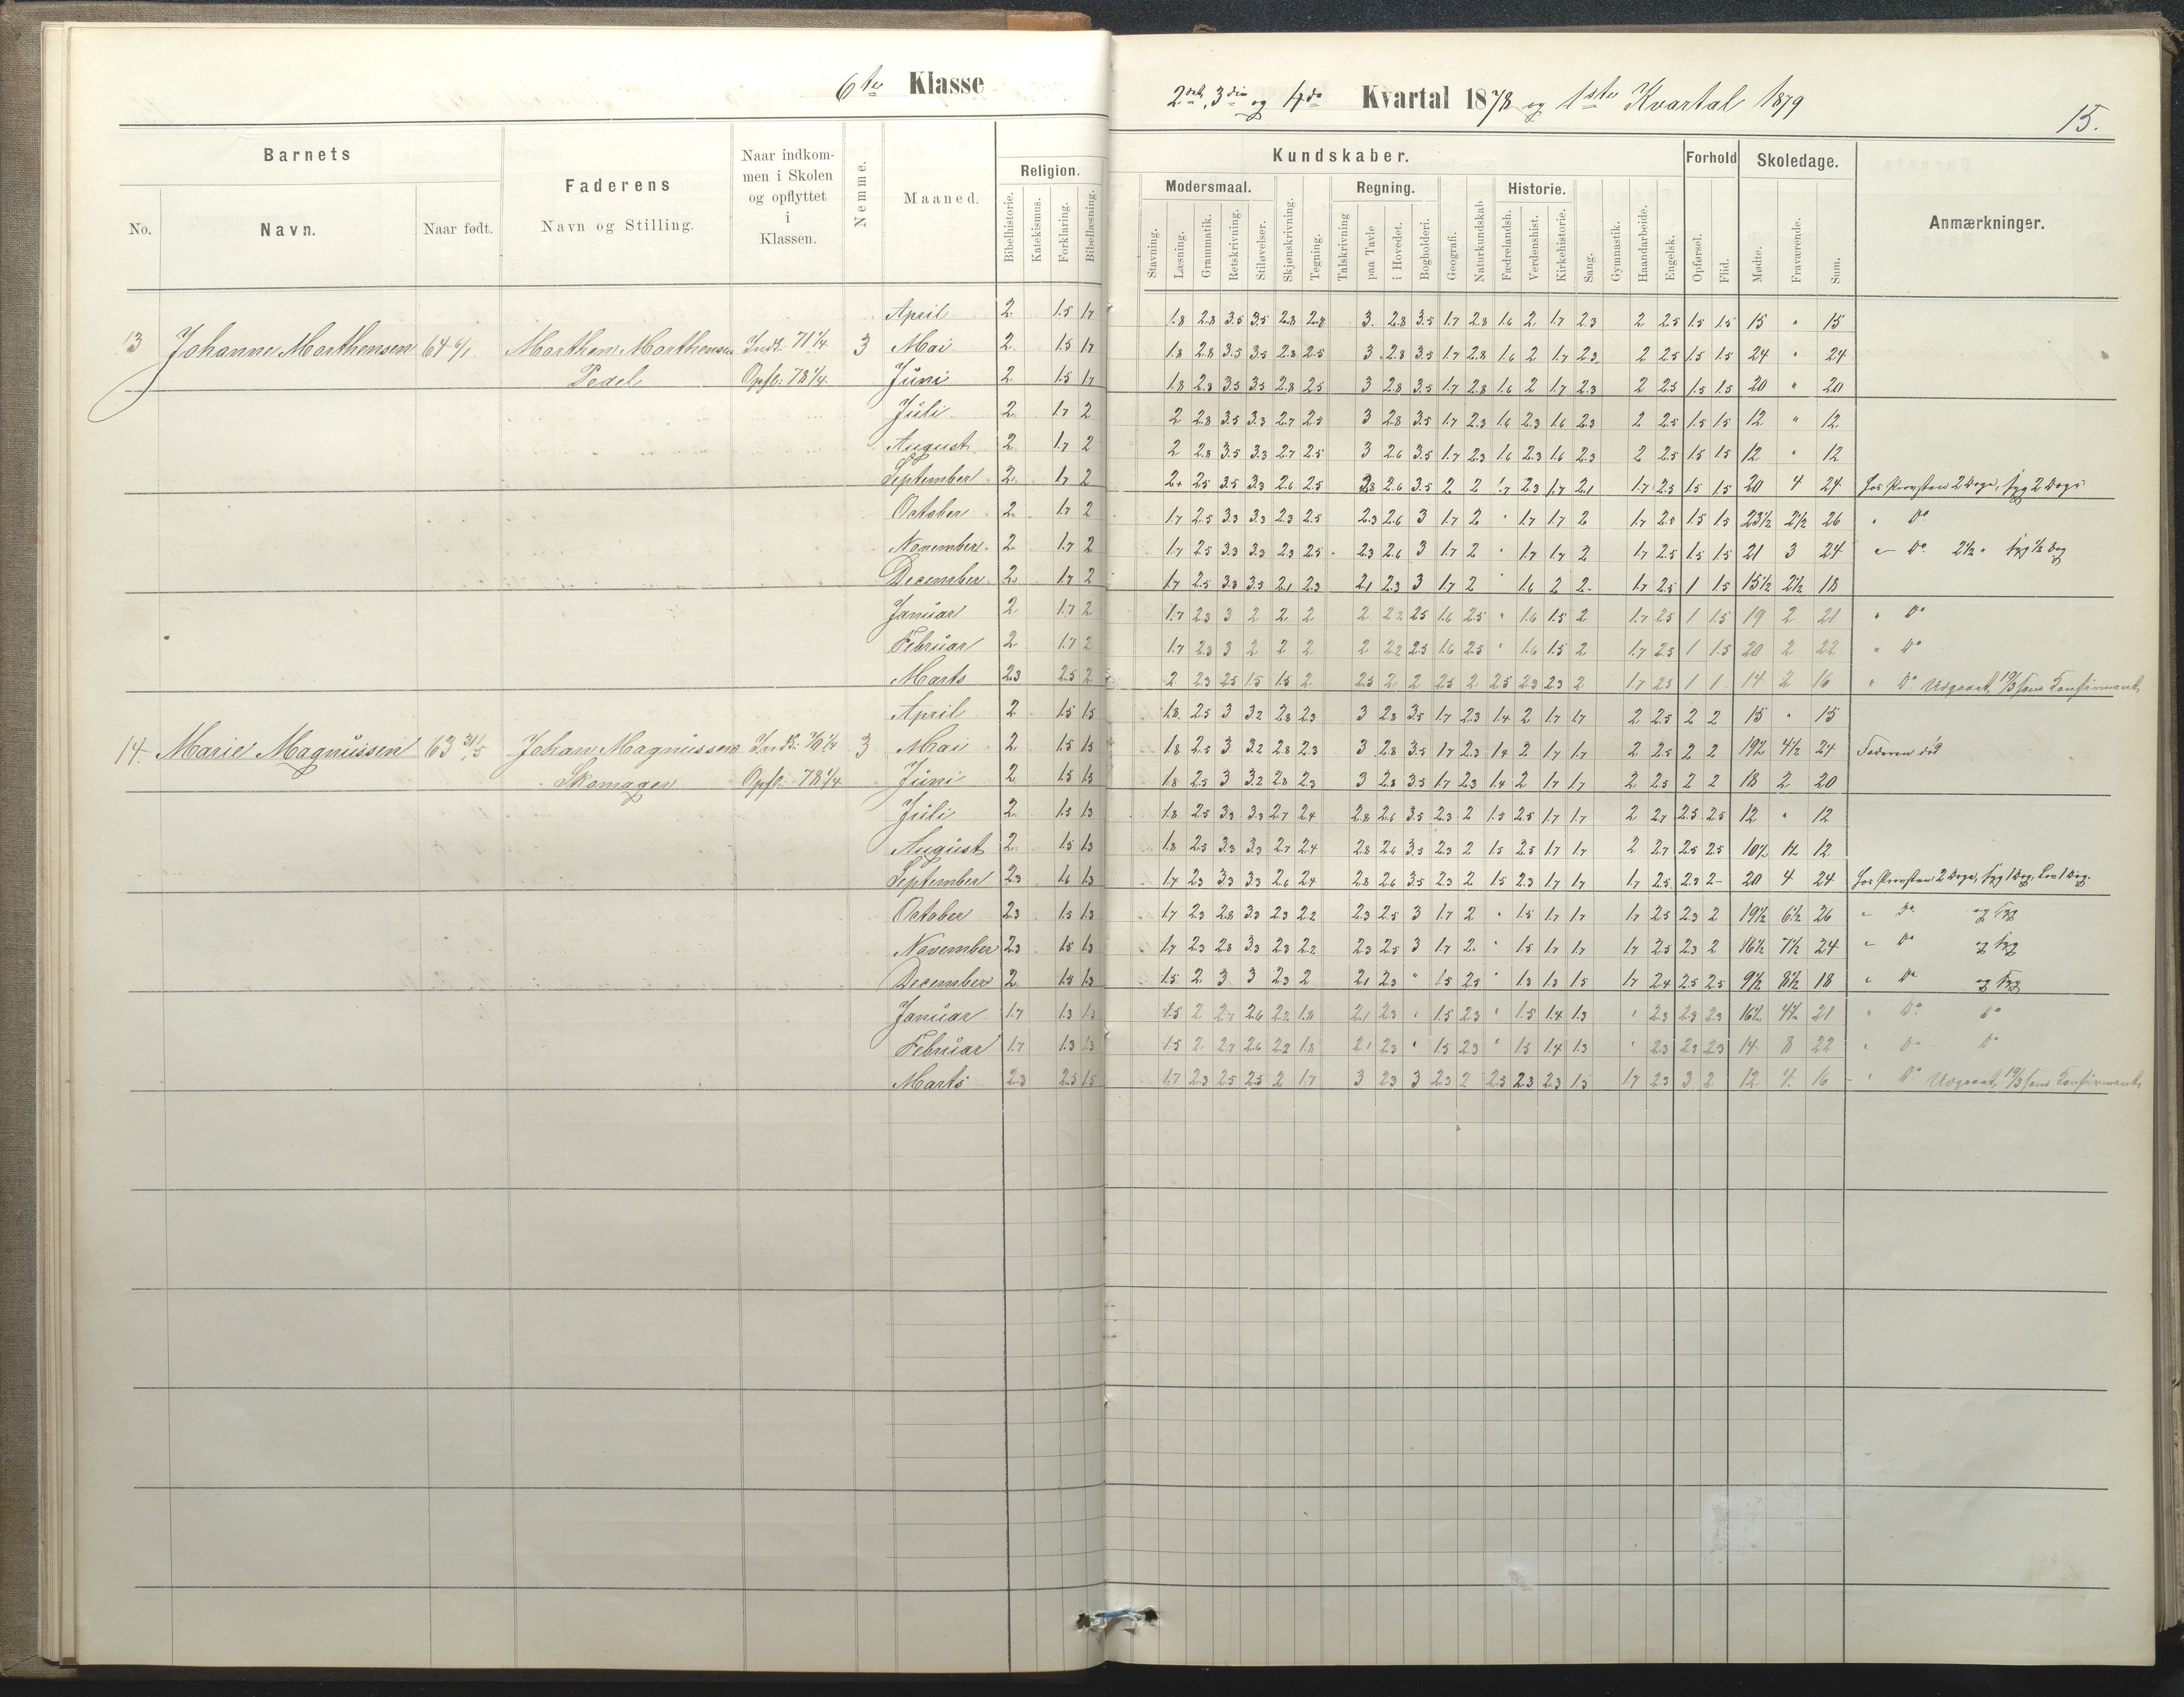 6te Klasse
2det, 3die og 4de Kvartal 1878 og 1ste Kvartal 1879
15.
Barnets
Faderens
Naar indkom-
men i Skolen
og opflyttet
i
Klassen.
Nemme.
Maaned.
Religion.
Kundskaber.
Forhold
Skoledage.
Anmærkninger.
No.
Navn.
Naar født.
Navn og Stilling.
Bibelhistorie.
Katekismus.
Forklaring.
Bibellæsning.
Modersmaal.
Regning.
Historie.
Stavning.
Læsning.
Grammatik.
Retskrivning.
Stiløvelser.
Skjønskrivning.
Tegning.
Talskrivning
paa Tavle
i Hovedet.
Bogholderi.
Geografi.
Naturkundskab
Fædrelandsh.
Verdenshist.
Kirkehistorie.
Sang.
Gymnastik.
Haandarbeide.
Engelsk.
Opførsel.
Flid.
Mødte.
Fraværende.
Sum.
April 2. 1.5 1.7 1.8 2.8 3.5 3.5 2.8 2.8 3. 2.8 3.5 1.7 2.8 1.6 2 1.7 2.3 2 2.5 1.5 1.5 15 " 15
13 Johanne Marthensen 64 6/1 Marthen Marthensen Indk: 71 1/4 3 Mai 2. 1.5 1.7 1.8 2.8 3.5 3.5 2.8 2.5 3 2.8 3.5 1.7 2.8 1.6 2 1.7 2.3 2 2.5 1.5 1.5 24 " 24
Pedel Opfl: 78 1/4 Juni 2. 1.5 1.7 1.8 2.8 3.5 3.5 2.8 2.5 3 2.8 3.5 1.7 2.8 1.6 2 1.7 2.3 2 2.5 1.5 1.5 20 " 20
Juli 2. 1.7 2 2 2.8 3.5 3.3 2.7 2.5 3 2.8 3.5 1.7 2.3 1.6 2.3 1.6 2.3 2 2.5 1.5 1.5 12 " 12
August 2 1.7 2 2 2.8 3.5 3.3 2.7 2.5 3 2.6 3.5 1.7 2.3 1.6 2.3 1.6 2.3 2 2.5 1.5 1.5 12 " 12
September 2. 1.7 2 2+ 2.5 3.5 3.3 2.6 2.5 2.8 2.6 3.5 2 2 1.7 2.3 1.7 2.1 1.7 2.5 1.5 1.5 20 4 24 hos Provsten 2 Dage, syg 2 Dage
October 2. 1.7 2 1.7 2.5 3.3 3.3 2.3 2.5 2.3 2.6 3 1.7 2 " 1.7 1.7 2 1.7 2.5 1.5 1.5 23 1/2 2 1/2 26 " Do
November 2 1.7 2 1.7 2.5 3.3 3.3 2.3 2.5 2.3 2.6 3 1.7 2 " 1.7 1.7 2 1.7 2.5 1.5 1.5 21 3 24 " Do 2 1/2 " syg 1/2 Dag
December 2. 1.7 2 1.7 2.5 3.3 3.3 2.1 2.3 2.1 2.3 3 1.7 2 " 1.6 2 2 1.7 2.5 1 1.5 15 1/2 2 1/2 18
Januar 2 1.7 2 1.7 2.3 3 2 2 2 2 2.2 2.5 1.6 2.5 " 1.6 1.5 2 1.7 2.5 1 1.5 19 2 21 " Do
Februar 2 1.7 2 1.7 2.3 3 2 2 2 2 2.2 2.5 1.6 2.5 " 1.6 1.5 2 1.7 2.5 1 1.5 20 2 22 " Do
Marts 2.3 2.5 2 2 2.3 2.5 1.5 1.5 2 2.5 2 2 2.5 2 2.5 2.3 2.3 2 1.7 2.3 1 1 14 2 16 " Do Udgaaet 19/3 som Confirmant
April 2 1.5 1.5 1.8 2.5 3 3.2 2.8 2.3 3 2.8 3.5 1.7 2.3 1.4 2 1.7 1.7 2 2.5 2 2 15 " 15
14. Marie Magnussen 63 31/5 Johan Magnussen Indk: 70 1/4 3 Mai 2. 1.5 1.5 1.8 2.5 3 3.2 2.8 2.3 3 2.8 3.5 1.7 2.3 1.4 2 1.7 1.7 2 2.5 2 2 19 1/2 4 1/2 24 Faderen død
Skomager Opfl: 78 1/4 Juni 2 1.5 1.5 1.8 2.5 3 3.2 2.8 2.3 3 2.8 3.5 1.7 2.3 1.4 2 1.7 1.7 2 2.5 2 2 18 2 20
Juli 2. 1.5 1.3 1.8 2.5 3.3 3.3 2.7 2.4 2.8 2.6 3.5 2.3 2 1.5 2.5 1.7 1.7 2 2.7 2.5 2.5 12 " 12
August 2. 1.5 1.3 1.8 2.5 3.3 3.3 2.7 2.4 2.8 2.6 3.5 2.3 2 1.5 2.5 1.7 1.7 2 2.7 2.5 2.5 10 1/2 1 1/2 12
September 2.3 1.6 1.3 1.7 2.3 3.3 3.3 2.6 2.4 2.8 2.6 3.5 2.3 2 1.5 2.3 1.7 1.7 1.7 2.5 2.3 2 20 4 24 hos Provsten 2 Dage, syg 1 Dag, Lov 1 Dag.
October 2.3 1.5 1.3 1.7 2.3 2.8 3.3 2.3 2.2 2.3 2.5 3 1.7 2 " 1.5 1.7 1.7 1.7 2.5 2.3 2 19 1/2 6 1/2 26 " Do og syg
November 2.3 1.5 1.3 1.7 2.3 2.8 3.3 2.3 2.2 2.3 2.5 3 1.7 2. " 1.5 1.7 1.7 1.7 2.5 2.3 2 16 1/2 7 1/2 24 " Do og syg
December 2. 1.5 1.3 1.5 2 3 3 2.3 2 2.1 2.3 " 1.5 2.5 " 1.3 1.3 1.5 1.7 2.4 2.5 2.5 9 1/2 8 1/2 18 " Do og syg
Januar 1.7 1.3 1.3 1.5 2 2.7 2.6 2.2 1.8 2.1 2.3 " 1.5 2.3 " 1.5 1.4 1.3 " 2.3 2.3 2.3 16 1/2 4 1/2 21 " Do Do
Februar 1.7 1.3 1.3 1.5 2 2.7 2.6 2.2 1.8 2.1 2.3 " 1.5 2.3 " 1.5 1.4 1.3 " 2.3 2.3 2.3 14 8 22 " Do Do
Marts 2.3 2.5 1.5 1.7 2.3 2.5 2.5 2 1.7 3 2.3 3 2.3 2 2.5 2.3 2.3 1.5 1.7 2.3 3 2 12 4 16 " Do Udgaaet 19/3 som Confirmant